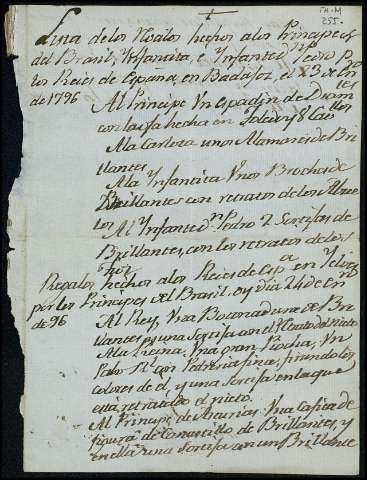 FH-M
255-
Lista de los Regalos hechos a los Principes
del Brasil, Ynfantita, e Ynfante Dn Pedro pr
los Reies de España, en Badajoz, el 23 de Enro
de 1796
Al Principe Vn espadin de Diamtes
con la oja hecha en Toledo y 8 Cavallos
A la Carlota unos Alamares de Bri
llantes
A la Ynfantita Vnos Broches de
Brillantes con retratos de los Abue
los
Al Ynfante Dn Pedro 2 Sortijas de
Brillantes, con los retratos de los
Regalos hechos a los Reies de Espa en Yelves
por los Principes del Brasil, oy dia 24 de Enro
de 96
Al Rey, Vna Botonadura de Bri
llantes y una Sortija con el Retrato del Nieto
A la Reina, Vna gran Piocha, Vn
Pabo Rl con Pedreria fina, imitando los
colores de el, y una Sortija en la que
está retratado el nieto.
Al Principe de Asturias, Vna Cajita de
figura de Canastillo de Brillantes, y
en ella una Sortija con un Brillante